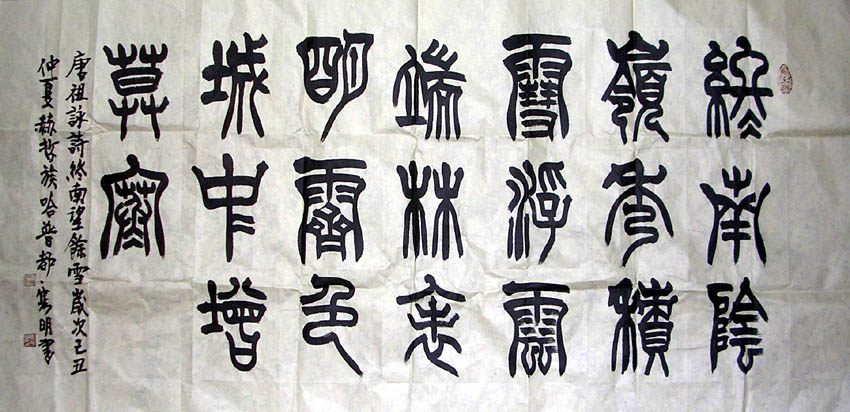 終南陰
嶺秀積
雪浮雲
端林表
明霽色
城中增
暮寒
唐祖詠詩終南望餘雪歲次己丑
仲夏赫哲族哈普都雋明書